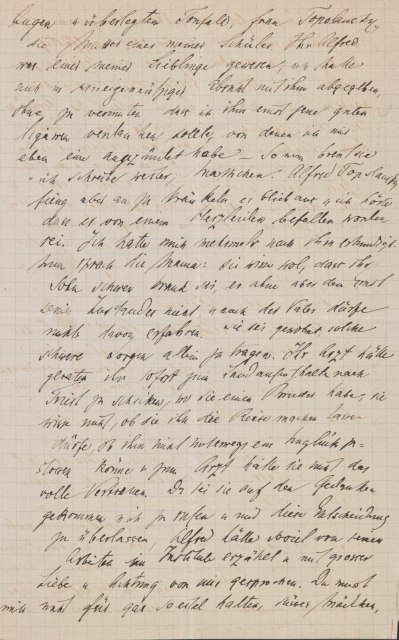 liegen u überlegten Tonfalls, Frau Topolansky,
die Mutter eines meiner Schüler. Ihr Alfred
war einer meiner Lieblinge gewesen, u ich hatte
mich in uneigennützigster mit ihm abgegeben,
ohne zu vermuten, dass ich ihm einst jene guten
Zigarren verdanken sollte, von denen ich mir
eben eine angezündet habe – So nun, brennt sie
u ich schreibe weiter, Alfred Topolansky
fieng aber an zu kränkeln, er blieb aus u ich hörte
dass er von einem Herzleiden befallen worden
sei. Ich hatte mich mehrmals nach ihm erkundigt.
Nun sprach die Mama: sie wisse wol, dass ihr
Sohn schwer krank sei, er ahne aber den Ernst
seines Zustandes nicht, u auch der Vater dürfe
nichts davon erfahren. sie sei gewohnt solche
schwere Sorgen allein zu tragen. Ihr Arzt hätte
geraten ihn sofort zum Landaufenthalte nach
Triest zu schicken, wo sie einen Bruder habe, sie
wisse nicht, ob sie ihn die Reise machen lassen
dürfe, ob ihm nicht unterwegs ein Unglück zu-
stossen könne u zum Arzt hätte sie nicht das
volle Vertrauen. Da sei sie auf den Gedanken
gekommen mich zu rufen u mir diese Entscheidung
zu überlassen. Alfred hätte soviel von seinen
Arbeiten im Institute erzählt u mit grosser
Liebe u Achtung von mir gesprochen. Du musst
mich nicht für gar so eitel halten,